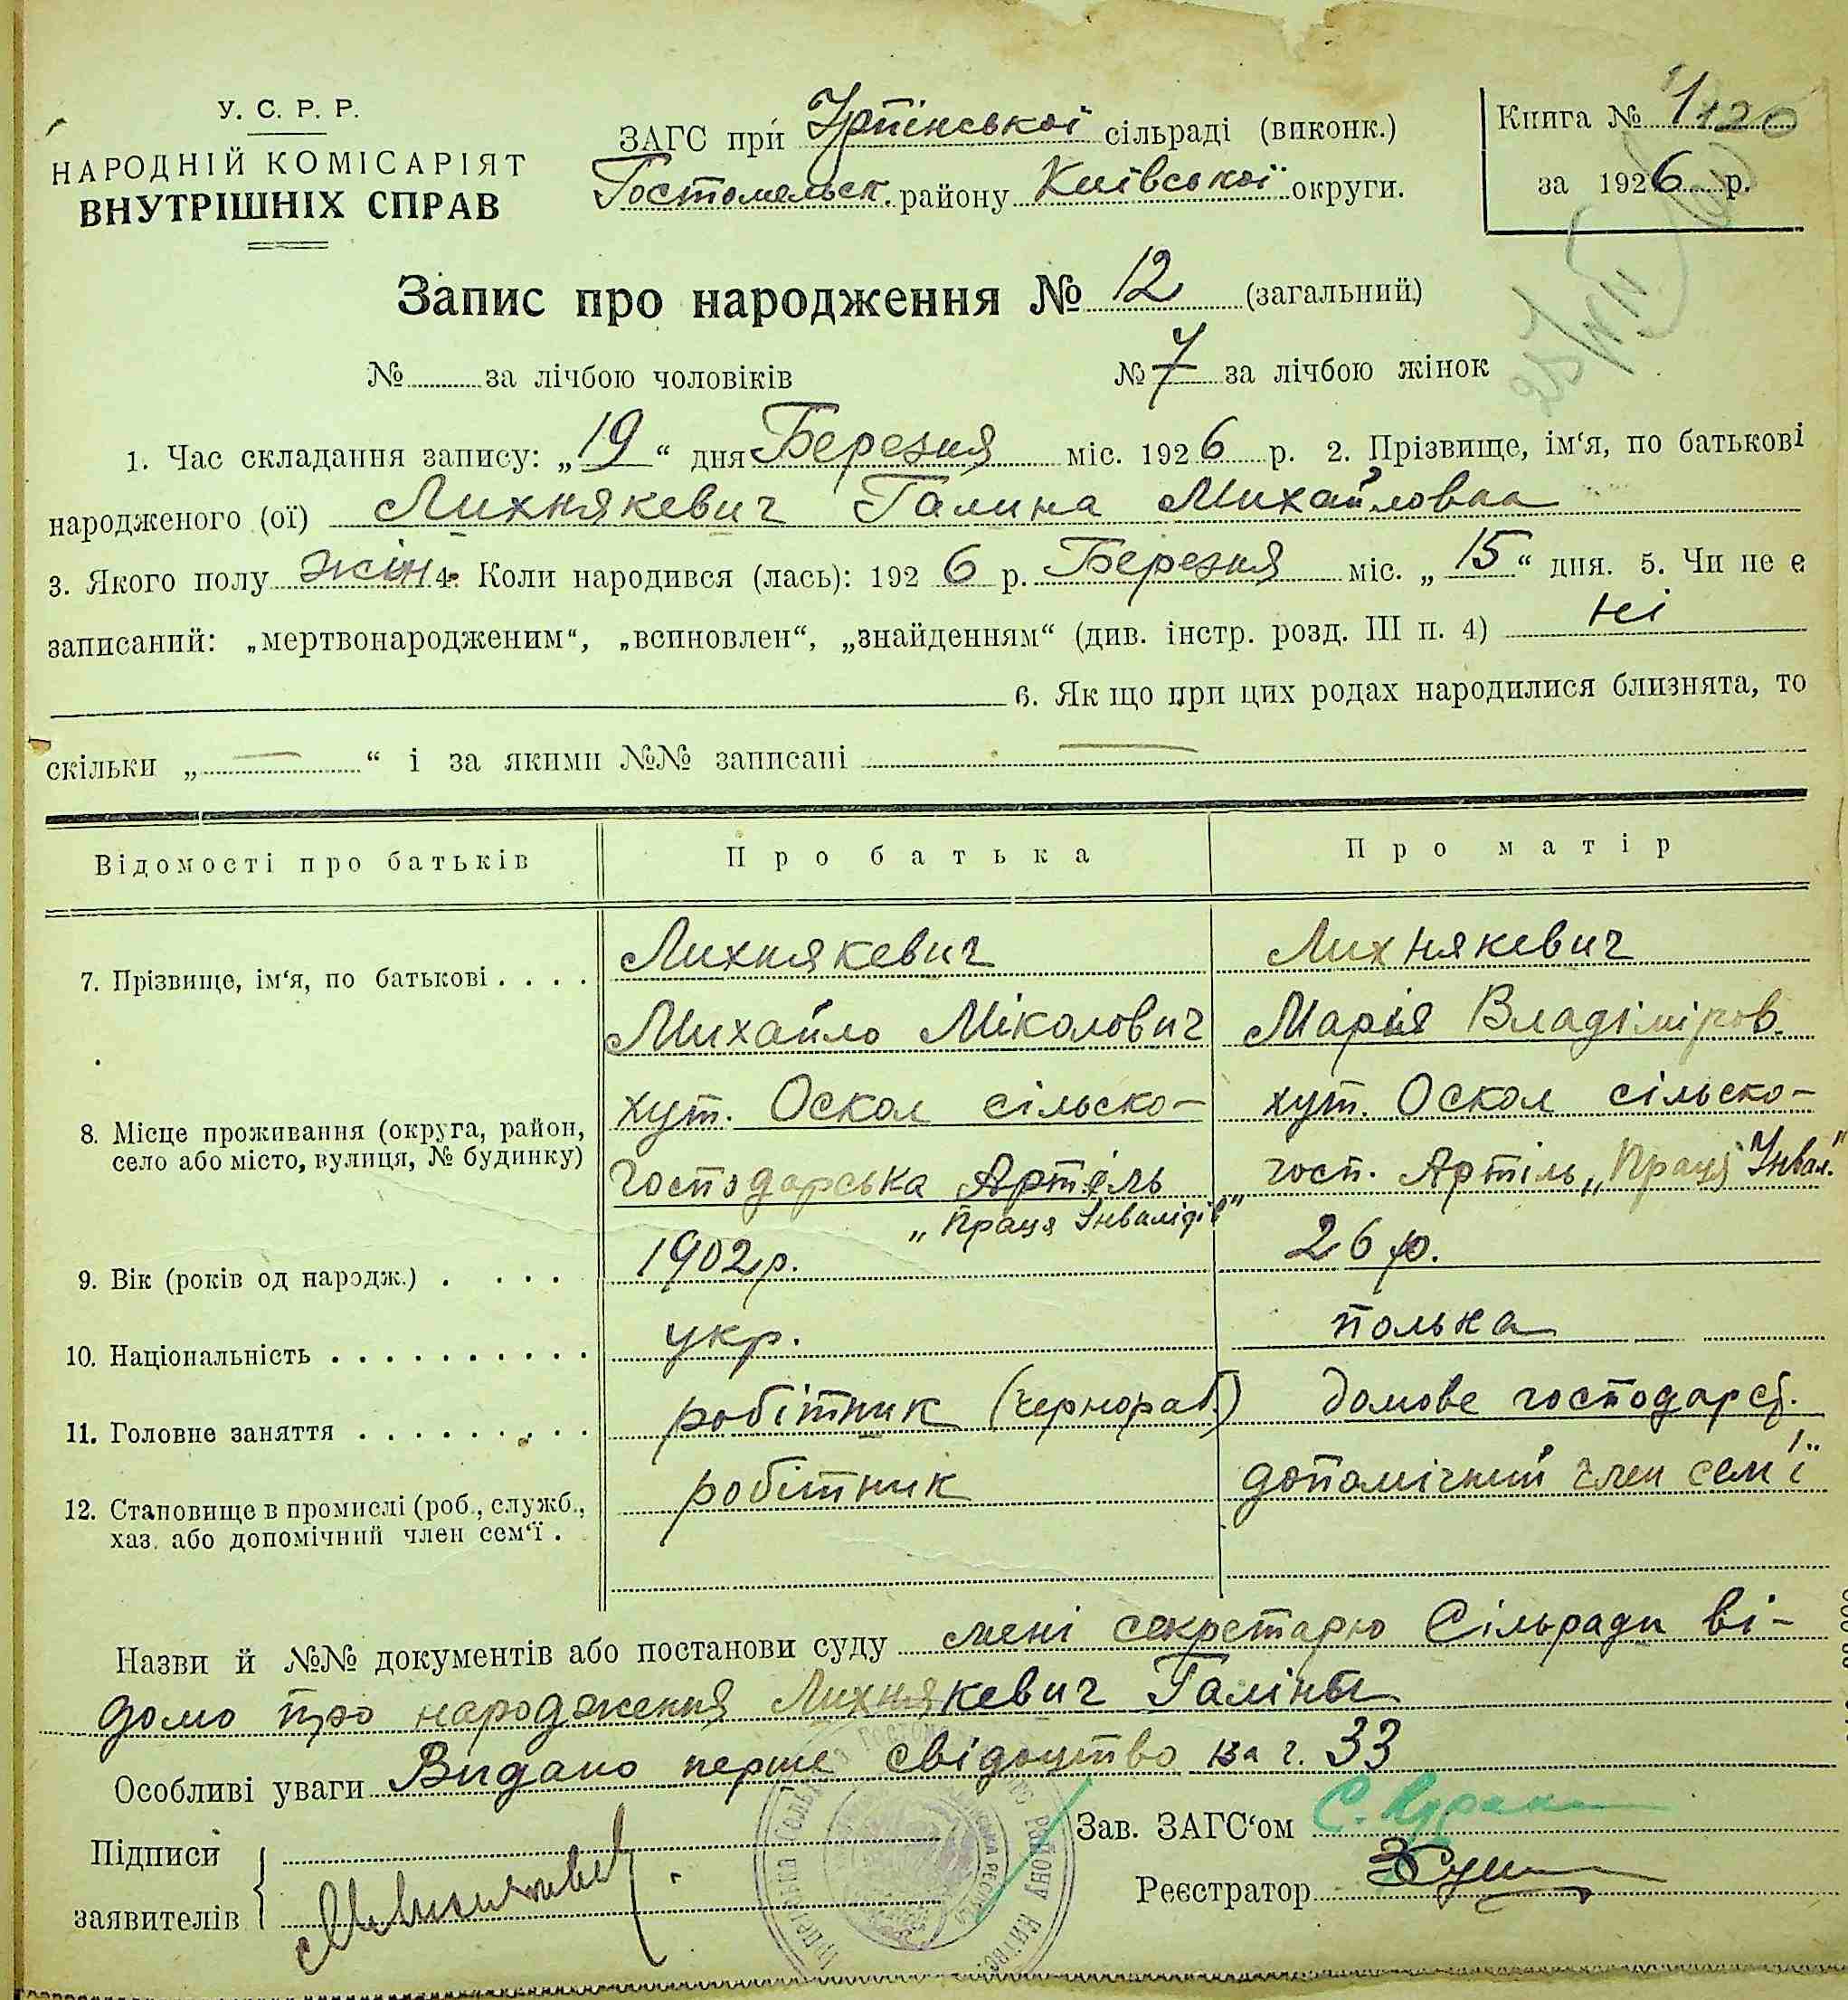 У. С. Р. Р.
НАРОДНІЙ КОМІСАРІЯТ
ВНУТРІШНІХ СПРАВ
ЗАГС при Ірпінської сільраді (виконк.)
Гостомельск. району Київської округи.
Книга № 1
за 1926 р.
Запис про народження № 12 (загальний)
№ за лічбою чоловіків № 7 за лічбою жінок
1. Час складання запису: „19“ дня Березня міс. 1926 р. 2. Прізвище, ім‘я, по батькові
народженого (ої) Лихнякевич Галина Михайловна
3. Якого полу жін. 4. Коли народився (лась): 1926 р. Березня міс. „15“ дня. 5. Чи не є
записаний: „мертвонародженим“, „всиновлен“, „знайденням“ (див. інстр. розд. III п. 4) ні
6. Як що при цих родах народилися близнята, то
скільки „ — “ і за якими №№ записані —
Відомості про батьків Про батька Про матір
7. Прізвище, ім‘я, по батькові . . . . Лихнякевич Лихнякевич
Михайло Міколович Марія Владіміров.
8. Місце проживання (округа, район, хут. Оскол сільско- хут. Оскол сільско-
село або місто, вулиця, № будинку) господарська Артіль госп. Артіль „Праця Інвал.“
„Праця Інвалідів“
9. Вік (років од народж.) . . . . 1902 р. 26 р.
10. Національність . . . . . . . . . . укр. полька
11. Головне заняття . . . . . . . . . робітник (чернораб.) домове господарст.
12. Становище в промислі (роб., служб., робітник допомічний член сем'ї
хаз. або допомічний член сем‘ї .
Назви й №№ документів або постанови суду мені секретарю Сільради ві-
домо про народження Лихнякевич Галіны
Особливі уваги Видано перше свідоцтво за ч. 33
Підписи
заявителів
Зав. ЗАГС‘ом
Реєстратор